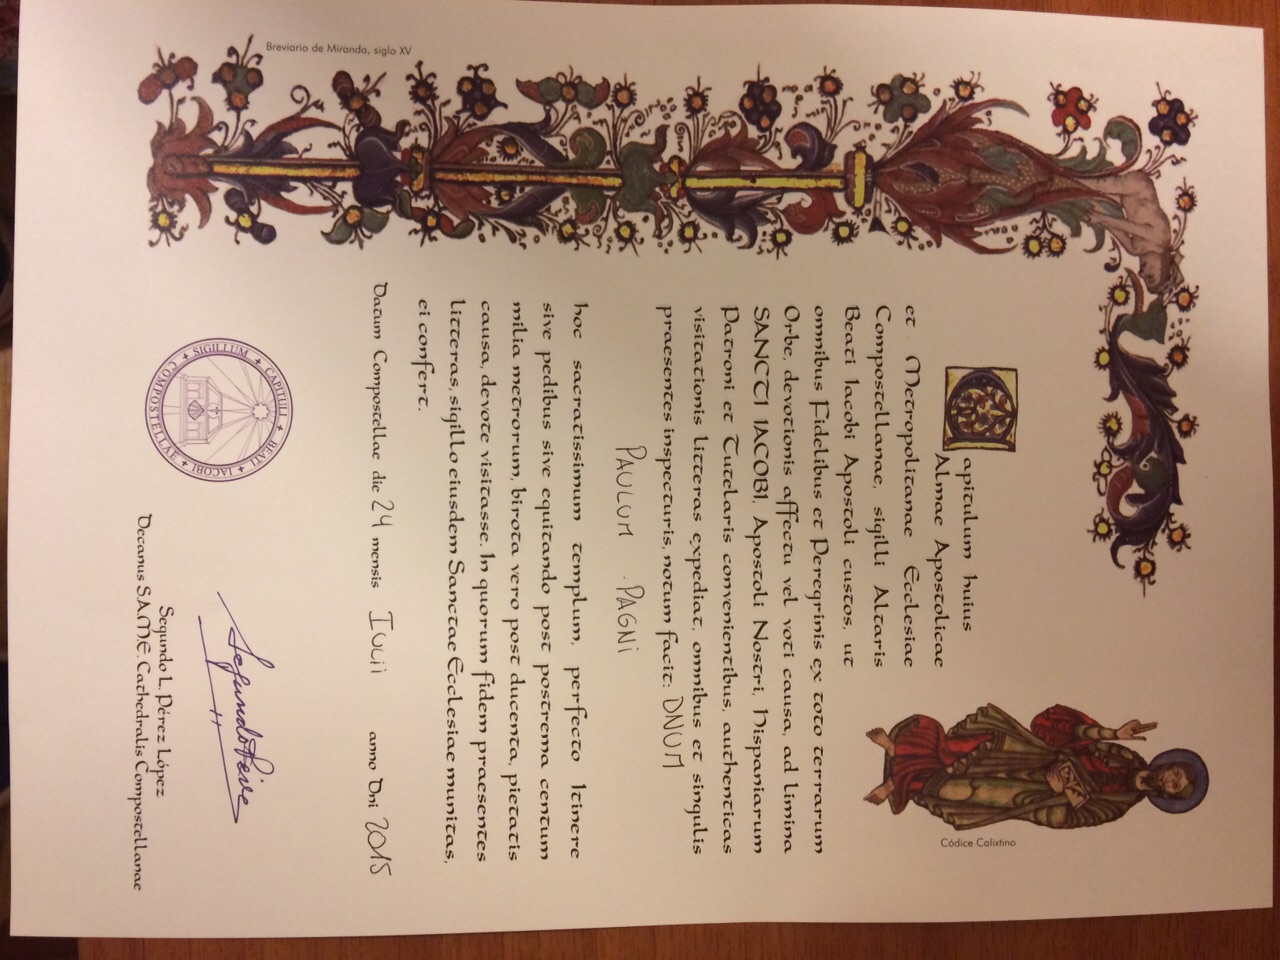 Breviario de Miranda, siglo XV
Capitulum huius
Almae Apostolicae
et Metropolitanae Ecclesiae
Compostellanae, sigilli Altaris
Beati Iacobi Apostoli custos, ut
omnibus Fidelibus et Peregrinis ex toto terrarum
Orbe, devotionis affectu vel voti causa, ad limina
SANCTI IACOBI, Apostoli Nostri, Hispaniarum
Patroni et Tutelaris convenientibus, authenticas
visitationis litteras expediat, omnibus et singulis
praesentes inspecturis, notum facit: DNUM
PAULUM . PAGNI
hoc sacratissimum templum, perfecto Itinere
sive pedibus sive equitando post postrema centum
milia metrorum, birota vero post ducenta, pietatis
causa, devote visitasse. In quorum fidem praesentes
litteras, sigillo eiusdem Sanctae Ecclesiae munitas,
ei confert.
Datum Compostellae die 24 mensis Iulii anno Dni 2015
Códice Calixtino
SIGILLUM CAPITULI BEATI IACOBI COMPOSTELLAE
Segundo L. Pérez López
Decanus S.A.M.E. Cathedralis Compostellanae